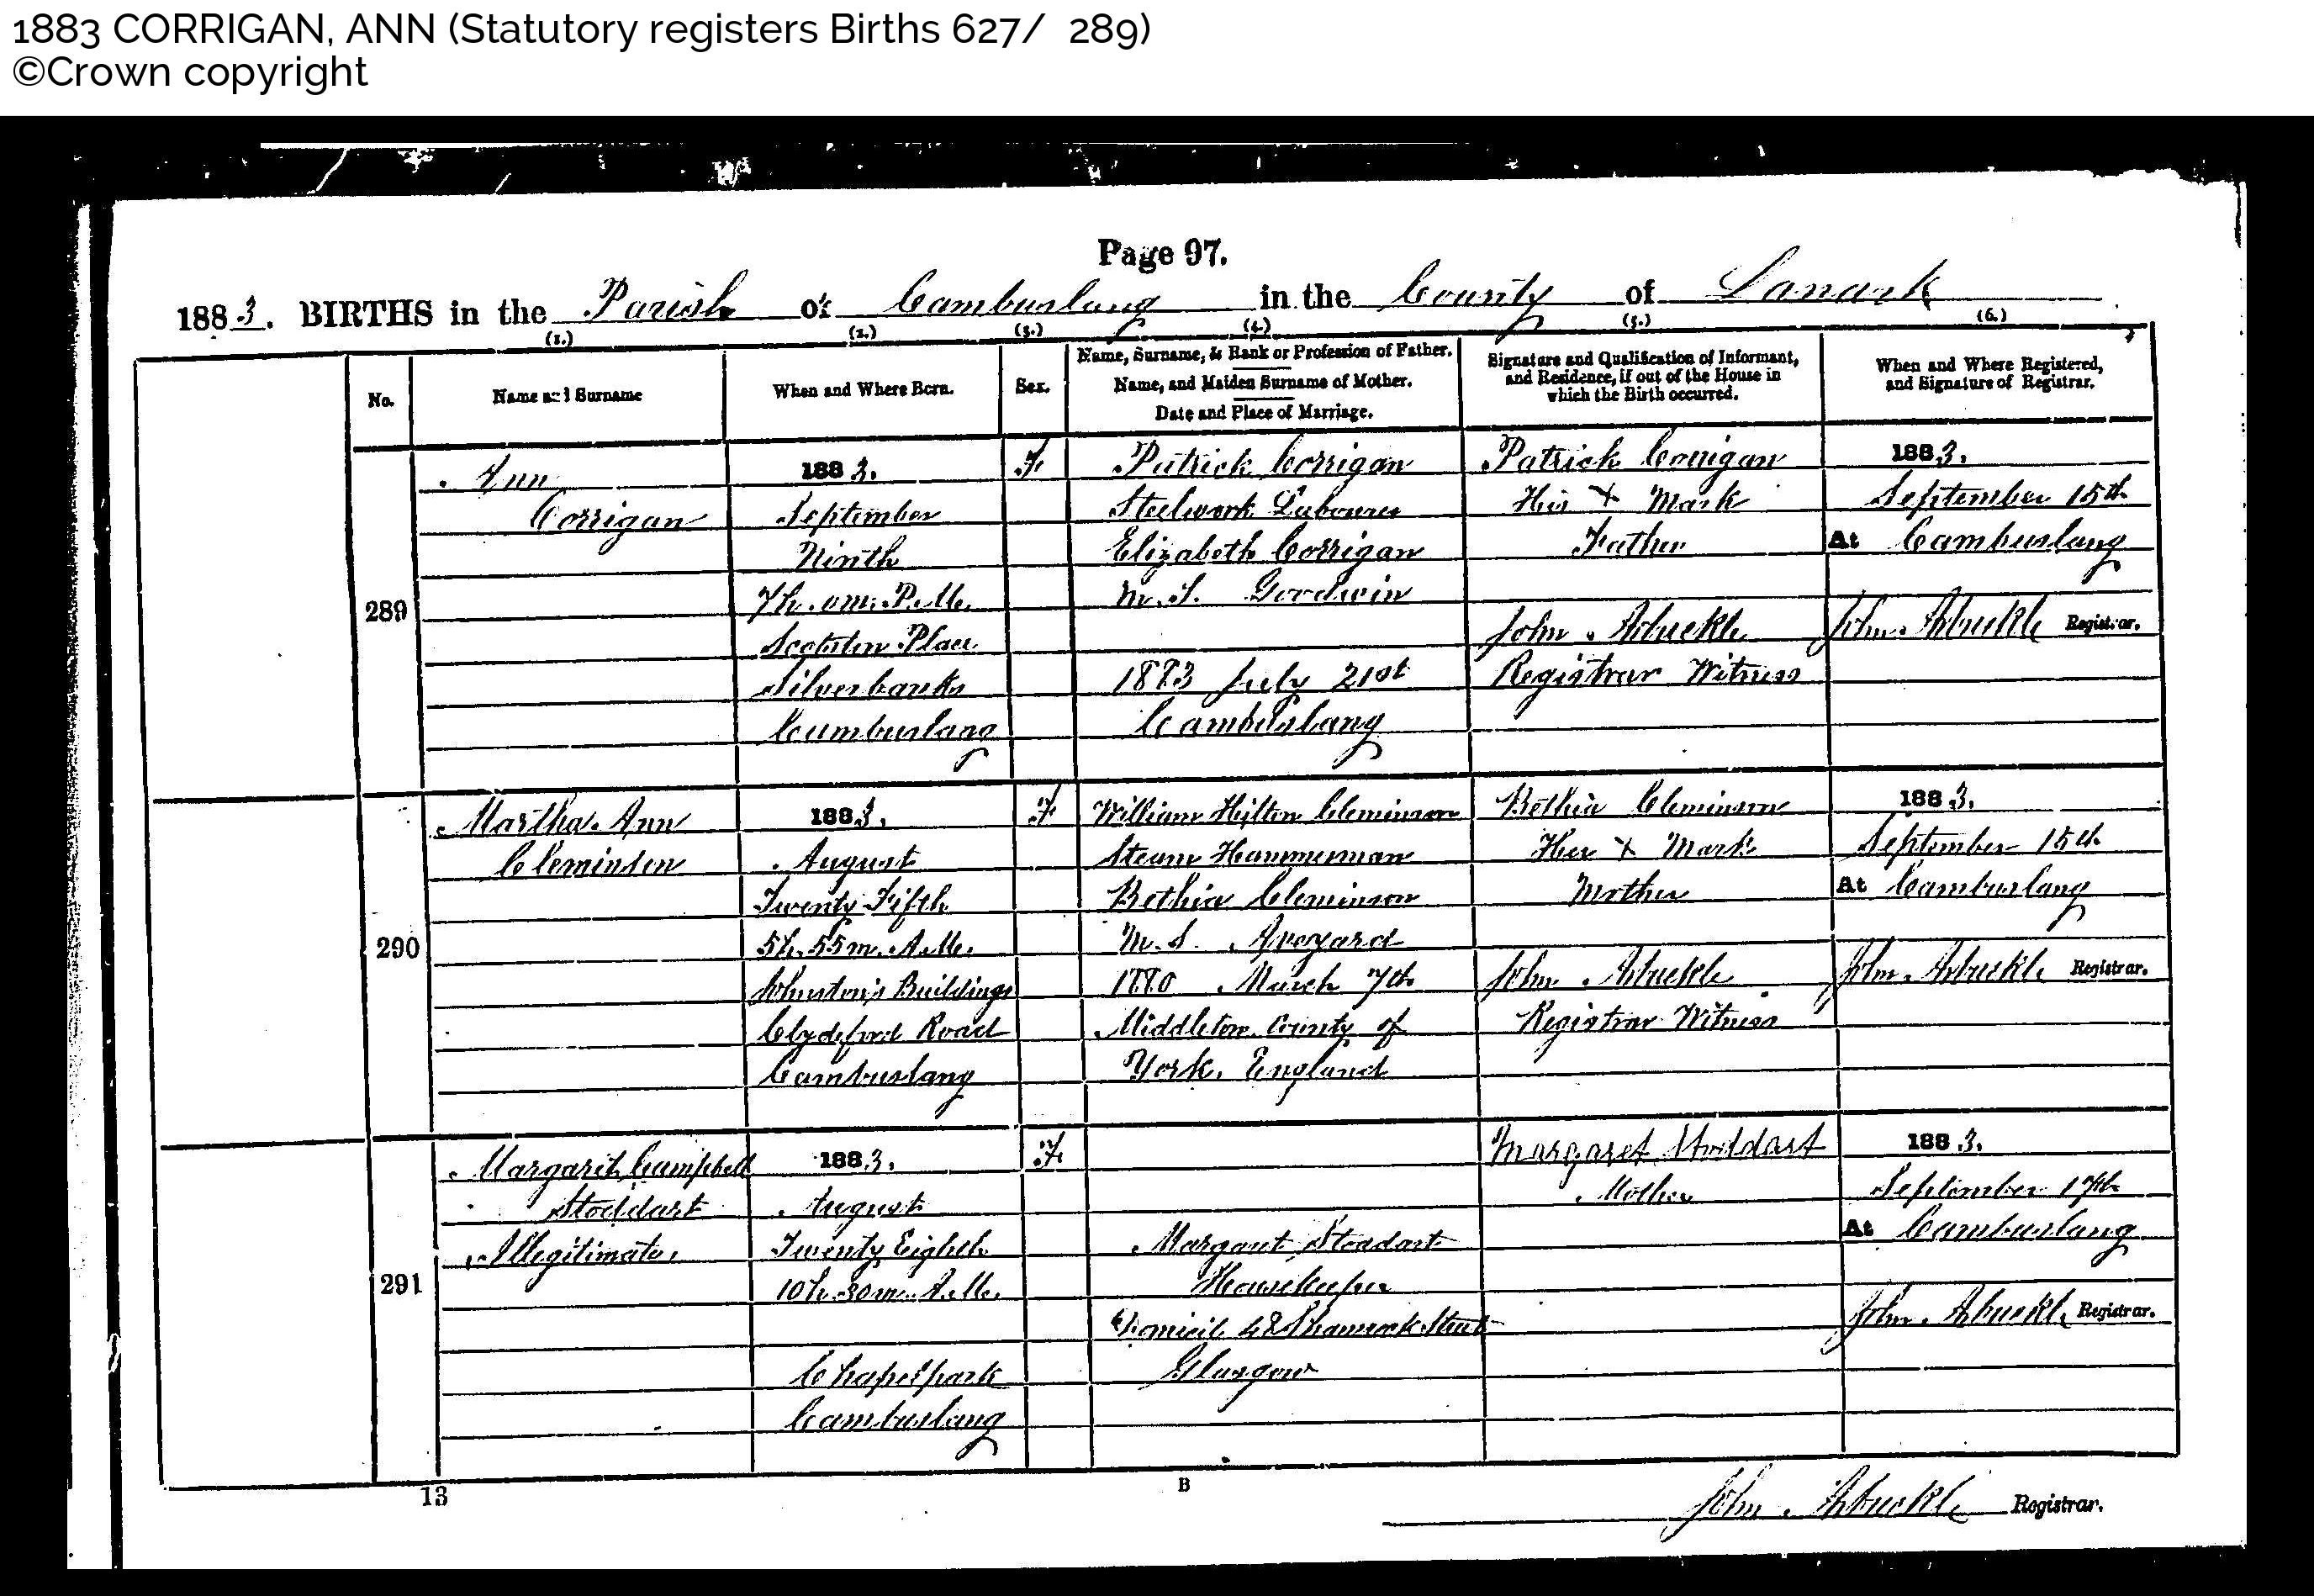 1883 CORRIGAN, ANN (Statutory registers Births 627/ 289)
©Crown copyright
Page 97.
1883. BIRTHS in the Parish of Cambuslang in the County of Lanark
(1.) (2.) (3.) (4.) (5.) (6.)
No.
Name and Surname
When and Where Born.
Sex.
Name, Surname, & Rank or Profession of Father.
Name, and Maiden Surname of Mother.
Date and Place of Marriage.
Signature and Qualification of Informant,
and Residence, if out of the House in
which the Birth occurred.
When and Where Registered,
and Signature of Registrar.
289
Ann
Corrigan
1883.
September
Ninth
7h. 0m. P.M.
Place
Silverbanks
Cambuslang
F
Patrick Corrigan
Steelwork Labourer
Elizabeth Corrigan
M.S. Goodwin
July 21st
Cambuslang
Patrick Corrigan
His X Mark
Father
John Arbuckle
Registrar Witness
1883.
September 15th
At Cambuslang
John Arbuckle Registrar.
290
Martha Ann
Cleminson
1883.
August
Twenty Fifth
5h. 55m. A.M.
Johnston's Buildings
Clydeford Road
Cambuslang
F
William Hilton Cleminson
Steam Hammerman
Bethia Cleminson
M.S. Aveyard
1880 March 7th
Middleton County of
York, England
Bethia Cleminson
Her X Mark
Mother
John Arbuckle
Registrar Witness
1883.
September 15th
At Cambuslang
John Arbuckle Registrar.
291
Margaret Campbell
Stoddart
Illegitimate
1883.
August
Twenty Eighth
10h. 30m. A.M.
Chapelpark
Cambuslang
F
Margaret Stoddart
Housekeeper
Domicile 42 Shamrock Street
Glasgow
Margaret Stoddart
Mother
1883.
September 17th
At Cambuslang
John Arbuckle Registrar.
13
B
John Arbuckle Registrar.